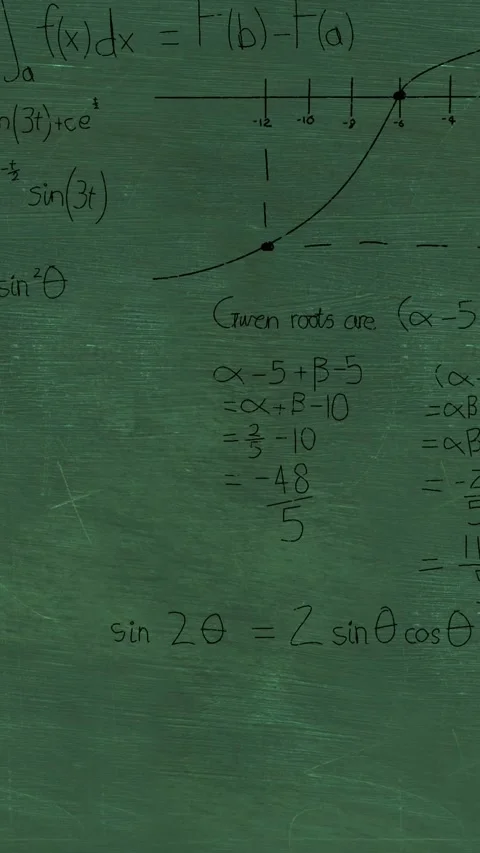 ∫a f(x)dx = F(b)-F(a)
n(3t)+ce
-12 -10 -8 -6 -4
-t/2 sin(3t)
sin²θ
Given roots are (α-5
α-5+β-5
=α+β-10
=2/5 -10
=-48/5
(α-
=αβ
=αβ
= -2/5
= 11
sin 2θ = 2 sinθcosθ